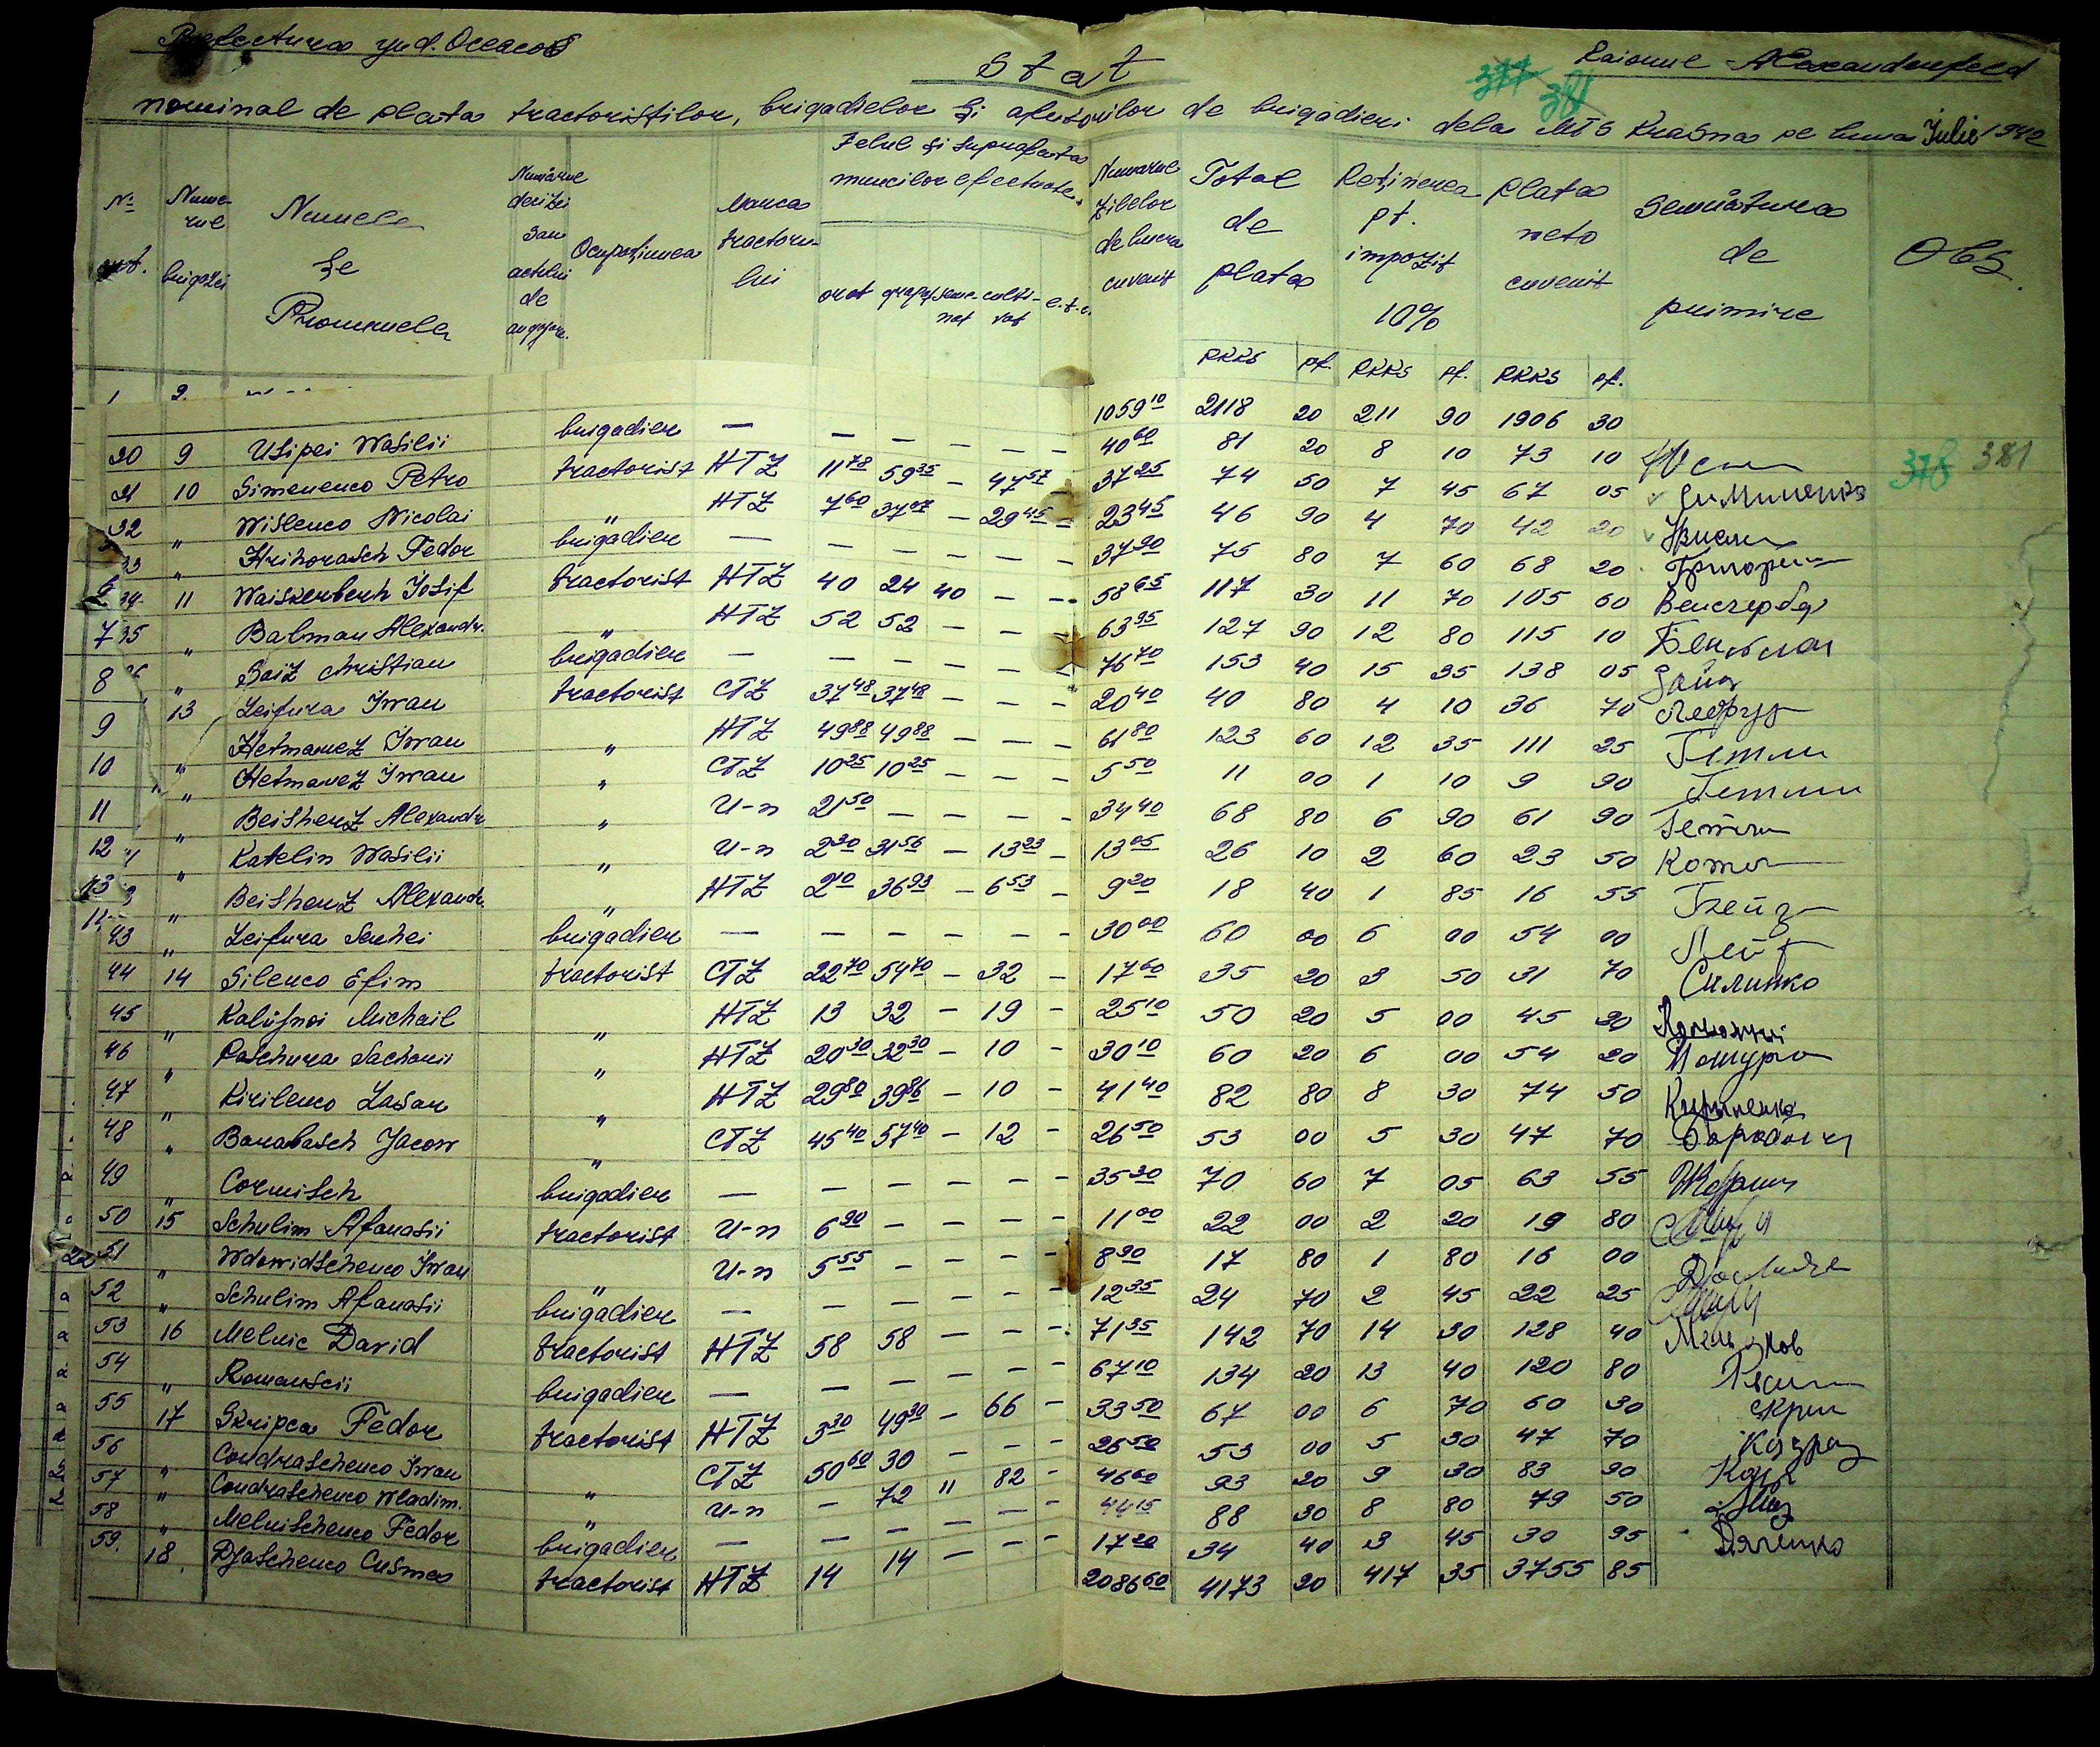 Prefectura jud. Oceacov
Raionul Alexandenfeld
Stat
377 381
nominal de plata tractoriștilor, brigadielor și ajutorilor de brigadieri dela MTS Krasna pe luna Julie 1942
No crt.
Numerul brigăzei
Numele și Pronumele
Numărul decizei sau actului de angajare.
Ocupațiunea
Marca tractorului
Felul și suprafața muncilor efectuate.
arat grapat semenat cultivat e.t.c.
Numărul zilelor de lucru cuvenit
Total de plata
Reținerea pt. impozit 10%
Plata neto cuvenit
Semnătura de primire
Obs.
RKKS pf. RKKS pf. RKKS pf.
1 2
1059 10 2118 20 211 90 1906 30
30 9 Usipei Wasilii brigadier — — — — — — 40 60 81 20 8 10 73 10
378 381
31 10 Simenenco Petro tractorist HTZ 11 78 59 35 — 47 57 37 25 74 50 7 45 67 05 Симиненко
32 " Wislenco Nicolai " HTZ 7 60 37 07 — 29 45 — 23 45 46 90 4 70 42 20
33 " Hrihorasch Fedor brigadier — — — — — — 37 90 75 80 7 60 68 20
34 11 Waiskerberh Josif tractorist HTZ 40 24 40 — — 58 65 117 30 11 70 105 60
7 35 " Balman Alexandr. " HTZ 52 52 — — — 63 95 127 90 12 80 115 10
8 " Saiz Christian brigadier — — — — — — 76 70 153 40 15 35 138 05
9 13 Leifura Iwan tractorist CTZ 37 48 37 48 — — — 20 40 40 80 4 10 36 70
10 " Hetmanez Iwan " HTZ 49 88 49 88 — — — 61 80 123 60 12 35 111 25
" Hetmanez Iwan " CTZ 10 25 10 25 — — — 5 50 11 00 1 10 9 90
11 " Beishenz Alexandr. " U-n 21 50 — — — — 34 40 68 80 6 90 61 90
12 " Katelin Wasilii " U-n 2 30 31 56 — 13 23 — 13 05 26 10 2 60 23 50
13 " Beishenz Alexandr. " HTZ 2 10 36 93 — 6 53 — 9 20 18 40 1 85 16 55
43 " Leifura Serhei brigadier — — — — — — 30 00 60 00 6 00 54 00
44 14 Silenco Efim tractorist CTZ 22 70 54 70 — 32 — 17 60 35 20 3 50 31 70 Силинко
45 " Kalüjnoi Michail " HTZ 13 32 — 19 — 25 10 50 20 5 00 45 20
46 " Paschura Sachorii " HTZ 20 30 32 30 — 10 — 30 10 60 20 6 00 54 20 Пашура
47 " Kirilenco Lasar " HTZ 29 80 39 86 — 10 — 41 40 82 80 8 30 74 50 Кириленко
48 " Barabasch Jacow " CTZ 45 40 57 40 — 12 — 26 50 53 00 5 30 47 70
49 " Cornisch brigadier — — — — — — 35 30 70 60 7 05 63 55
50 15 Schulim Afanasii tractorist U-n 6 90 — — — — 11 00 22 00 2 20 19 80
51 " Wdowidschenco Iwan " U-n 5 55 — — — — 8 90 17 80 1 80 16 00
52 " Schulim Afanasii brigadier — — — — — — 12 35 24 70 2 45 22 25
53 16 Melnic David tractorist HTZ 58 58 — — — 71 35 142 70 14 30 128 40
54 " Romanscii brigadier — — — — — — 67 10 134 20 13 40 120 80
55 17 Skripca Fedor tractorist HTZ 3 30 49 30 — 66 — 33 50 67 00 6 70 60 30 Скрип
56 " Condraschenco Iwan " CTZ 50 60 30 — — — 26 50 53 00 5 30 47 70
57 " Condraschenco Wladim. " U-n — 72 " 82 — 46 60 93 20 9 30 83 90
58 " Melnischenco Fedor brigadier — — — — — — 44 15 88 30 8 80 79 50
59. 18. Djaschenco Cusma tractorist HTZ 14 14 — — — 17 20 34 40 3 45 30 95 Дяченко
2086 60 4173 20 417 35 3755 85